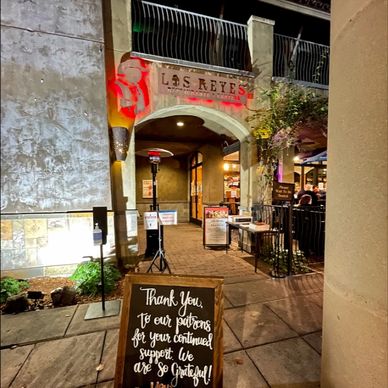 LOS REYES
Thank You,
to our patrons
for your continued
support. We
are so Grateful!